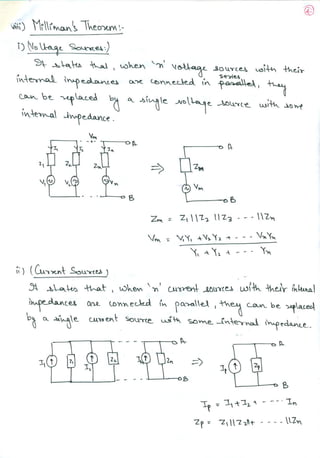 viii) Millman's Theorem:-
i) (Voltage Sources:)
It states that, when 'n' voltage sources with their
series,
internal impedances are connected in parallel, they
can be replaced by a single voltage source with some
internal impedance.
Vm
A A
I1 I2 In
Z1 Z2 Zn ⇒ Zm
V1 V2 Vn Vm
B B
Zm = Z1 || Z2 || Z3 - - - || Zn
Vm = V1Y1 + V2Y2 + - - - VnYn
Y1 + Y2 + - - - Yn
ii) (Current Sources)
It states that, when 'n' current sources with their internal
impedances are connected in parallel, they can be replaced
by a single current source with some internal impedance.
A A
I1 Z1 I1 Z2 In Zn ⇒ Ip Zp
B B
Ip = I1 + I2 + - - - In
Zp = Z1 || Z2 || + - - - - || Zn